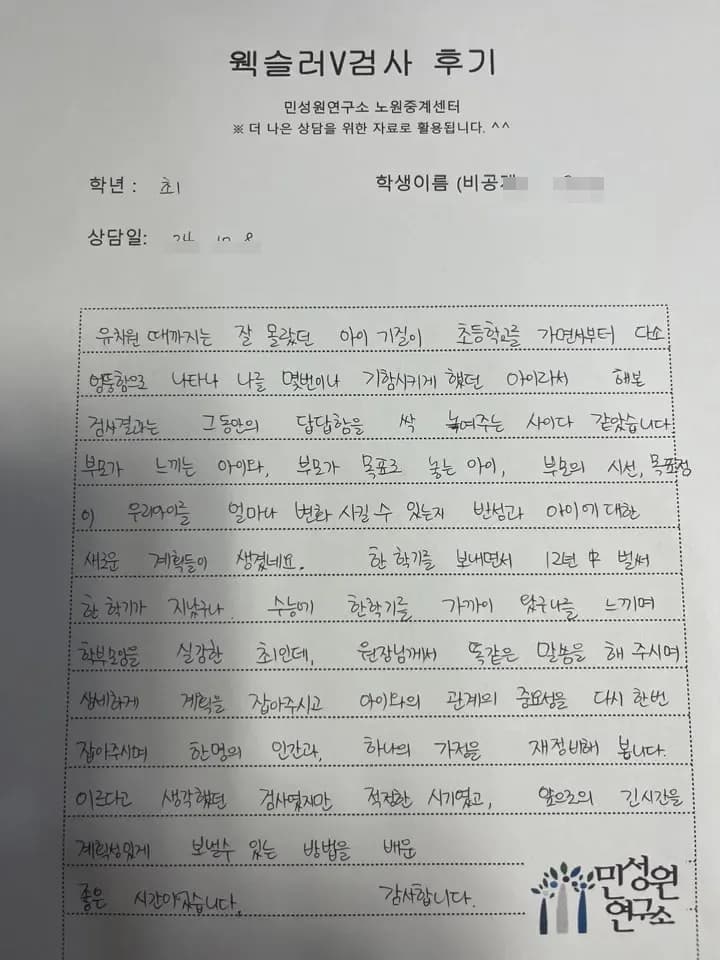 웩슬러V검사 후기
민성원연구소 노원중계센터
※ 더 나은 상담을 위한 자료로 활용됩니다. ^^
학년 : 초1
학생이름 (비공개
상담일:
유치원 때까지는 잘 몰랐던 아이 기질이 초등학교를 가면서부터 다소
엉뚱함으로 나타나 나를 몇번이나 기함시키게 했던 아이라서 해본
검사결과는 그동안의 답답함을 싹 녹여주는 사이다 같았습니다
부모가 느끼는 아이타, 부모가 목표로 놓는 아이, 부모의 시선, 목표점
이 우리아이를 얼마나 변화 시킬 수 있는지 반성과 아이에 대한
새로운 계획들이 생겼네요. 한 학기를 보내면서 12년 中 벌써
한 학기가 지났구나. 수능에 한학기를 가까이 왔구나를 느끼며
학부모임을 실감한 초1인데, 원장님께서 똑같은 말씀을 해 주시며
상세하게 계획을 잡아주시고 아이와의 관계의 중요성을 다시 한번
잡아주시며 한명의 인간과, 하나의 가정을 재정비해 봅니다.
이르다고 생각했던 검사였지만 적절한 시기였고, 앞으로의 긴시간을
계획성있게 보낼수 있는 방법을 배운
좋은 시간이었습니다. 감사합니다.
민성원
연구소